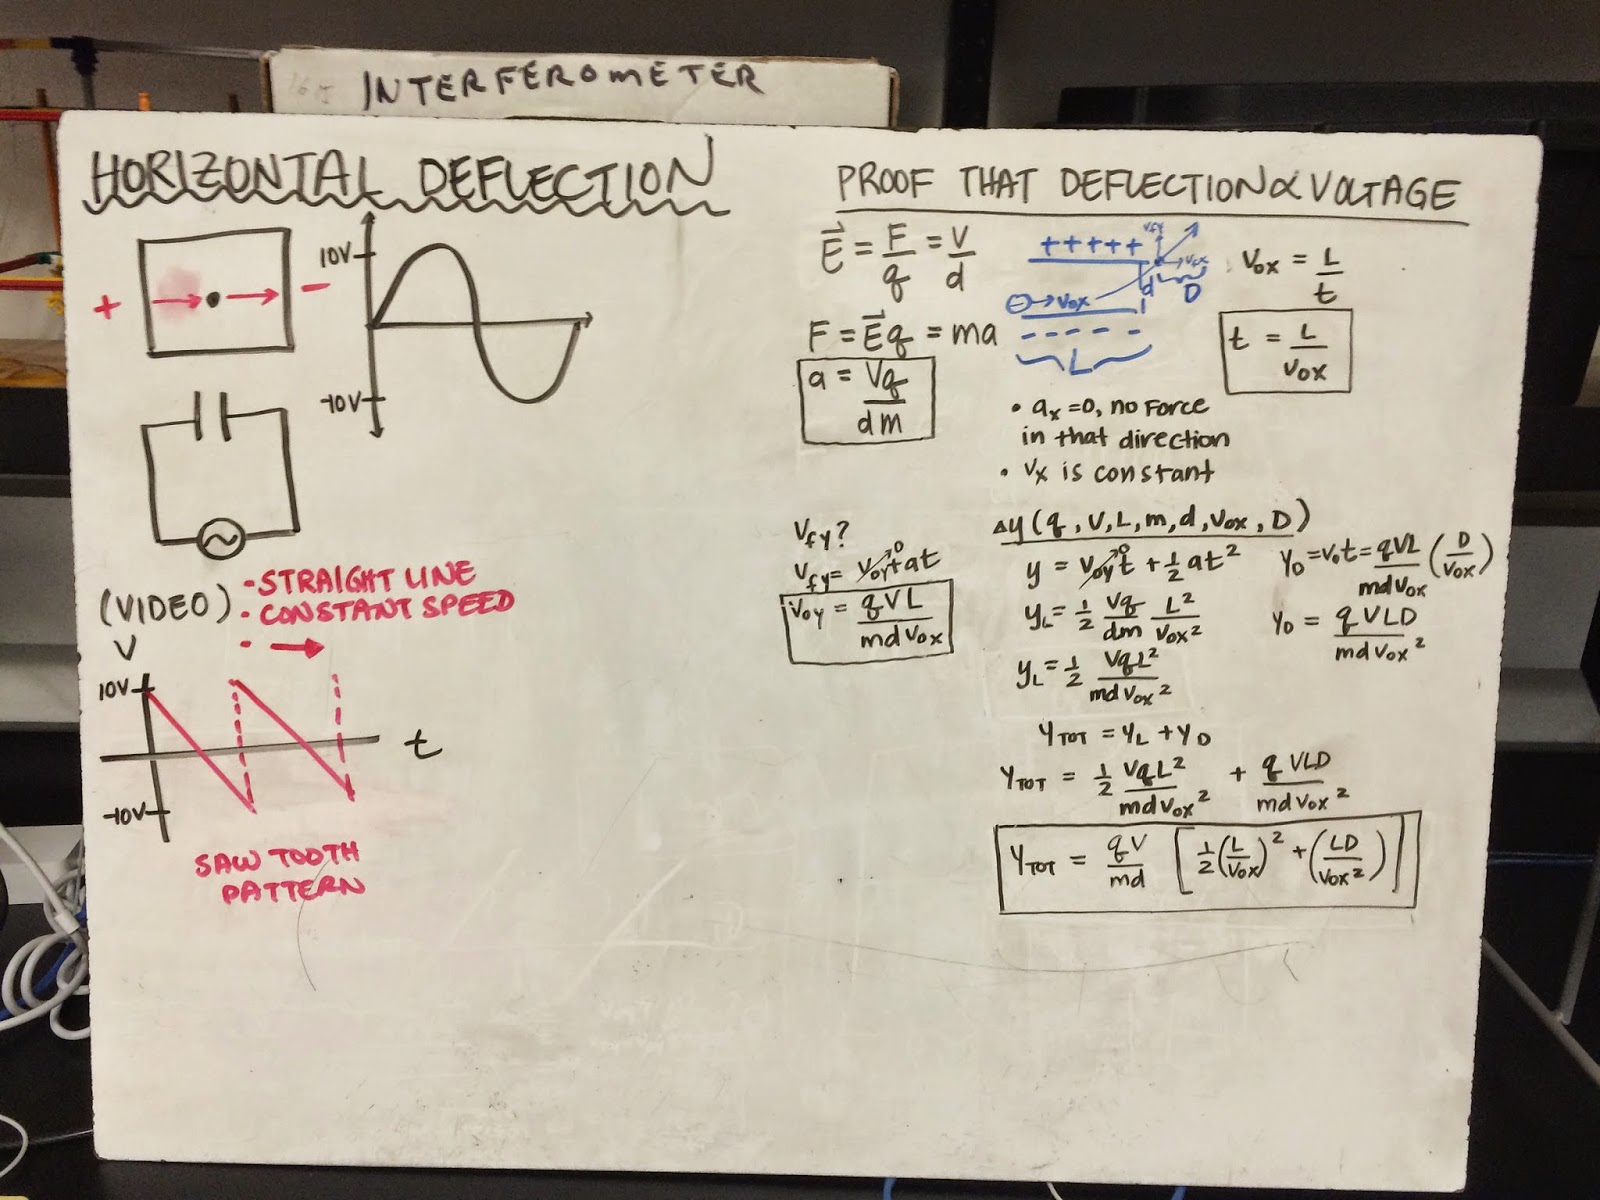 INTERFEROMETER
HORIZONTAL DEFLECTION
10V
+ → • → −
-10V
(VIDEO)
- STRAIGHT LINE
- CONSTANT SPEED
V
10V
t
-10V
SAW TOOTH
PATTERN
PROOF THAT DEFLECTION ∝ VOLTAGE
E⃗ = F/q = V/d
+++++
Vfy
d
D
⊖→ Vox
- - - - -
L
Vox = L/t
F = E⃗q = ma
t = L/Vox
a = Vq/dm
• ax = 0, no Force
in that direction
• Vx is constant
Vfy?
Vfy = Voy⁰ + at
Voy = qVL/mdVox
Δy(q, V, L, m, d, Vox, D)
y = Voy⁰t + 1/2 at²
yL = 1/2 Vq/dm L²/Vox²
yL = 1/2 VqL²/mdVox²
YD = V₀t = qVL/mdVox (D/Vox)
YD = qVLD/mdVox²
YTOT = YL + YD
YTOT = 1/2 VqL²/mdVox² + qVLD/mdVox²
YTOT = qV/md [1/2 (L/Vox)² + (LD/Vox²)]